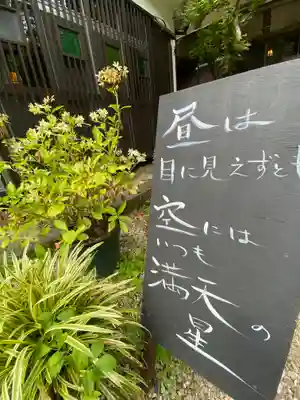 昼は
目に見えずとも
空には
いつも
満天の
星